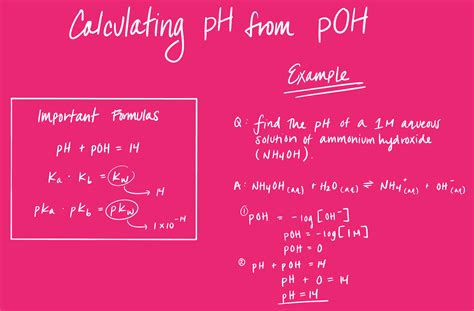 Calculating pH from pOH
Important Formulas
pH + pOH = 14
Ka · Kb = Kw
→ 14
pKa · pKb = pKw
→ 1 x 10⁻¹⁴
Example
Q: find the pH of a 1M aqueous
solution of ammonium hydroxide
(NH4OH).
A: NH4OH(aq) + H2O(aq) ⇌ NH4⁺(aq) + OH⁻(aq)
① pOH = -log[OH⁻]
pOH = -log[1M]
pOH = 0
② pH + pOH = 14
pH + 0 = 14
pH = 14